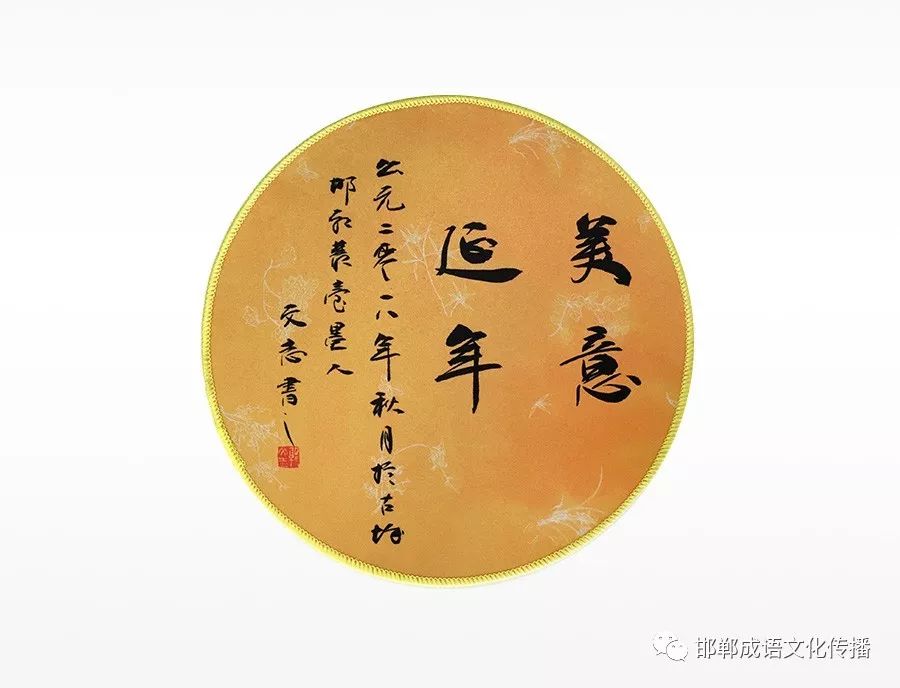 美意
延年
公元二零一八年秋月於古城
邯郸丛臺墨人
文志書之
邯郸成语文化传播